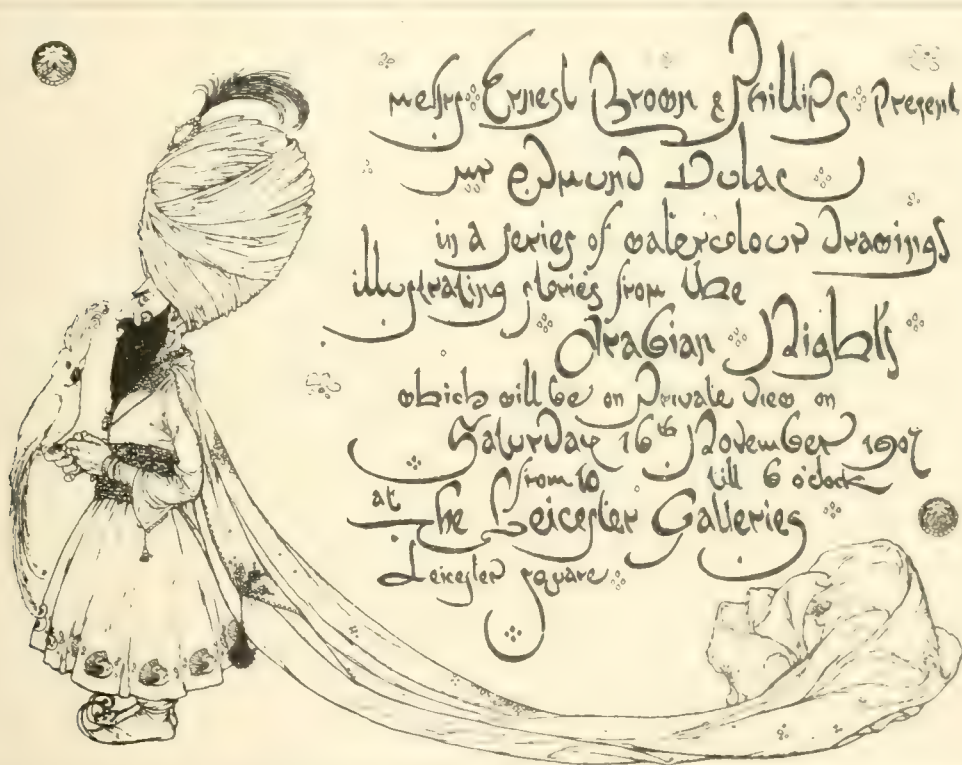 messrs Ernest Brown & Phillips present
mr edmund Dulac
in a series of watercolour drawings
illustrating stories from the
Arabian Nights
which will be on Private view on
Saturday 16th November 1907
from 10 till 6 o'clock
at The Leicester Galleries
Leicester square